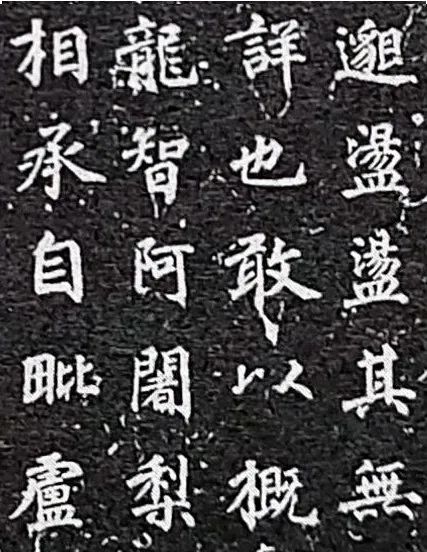 邈盪盪其無
詳也敢以概
龍智阿闍梨
相承自毗盧